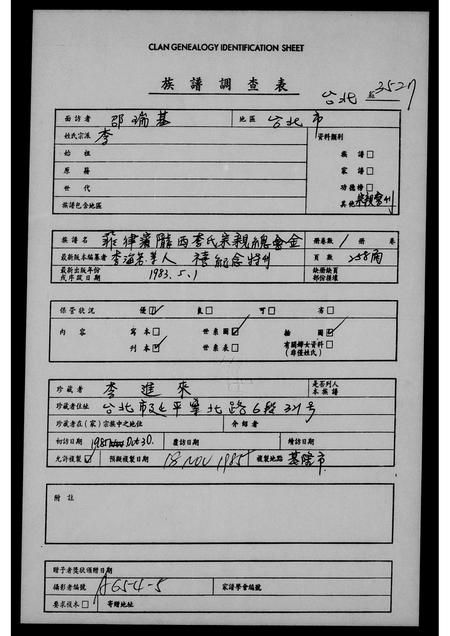 CLAN GENEALOGY IDENTIFICATION SHEET
族譜調查表
台北 3527
面訪者 邵瑞基 地區 台北市
姓氏宗派 李 資料類別
始祖 族譜□
原籍 家譜□
世代 功德榜□
族譜包含地區 其他 宗親會刊
族譜名 菲律賓隴西李氏宗親總會金 冊卷數 1 冊 卷
最新版本編纂者 李海若等人 禧紀念特刊 頁數 258面
最新出版年份或序跋日期 1983.5.1 缺冊缺頁部份描述
保管狀況 優☑ 良□ 可□ 劣□
內容 寫本□ 世系圖☑ 插圖☑
刊本☑ 世系表□ 有關婦女資料□
(非僅姓氏)
珍藏者 李進來 是否列入本族譜
珍藏者住址 台北市延平北路6段321号
珍藏者在(家)宗族中之地位 介紹者
初訪日期 1985 Oct 30. 覆訪日期 續訪日期
允許複製☑ 預擬複製日期 18 NOV 1985 複製地點 基隆市
附註
贈予者獎狀頒贈日期
攝影者編號 A65-4-5 家譜學會編號
要求複本□ 寄贈地址